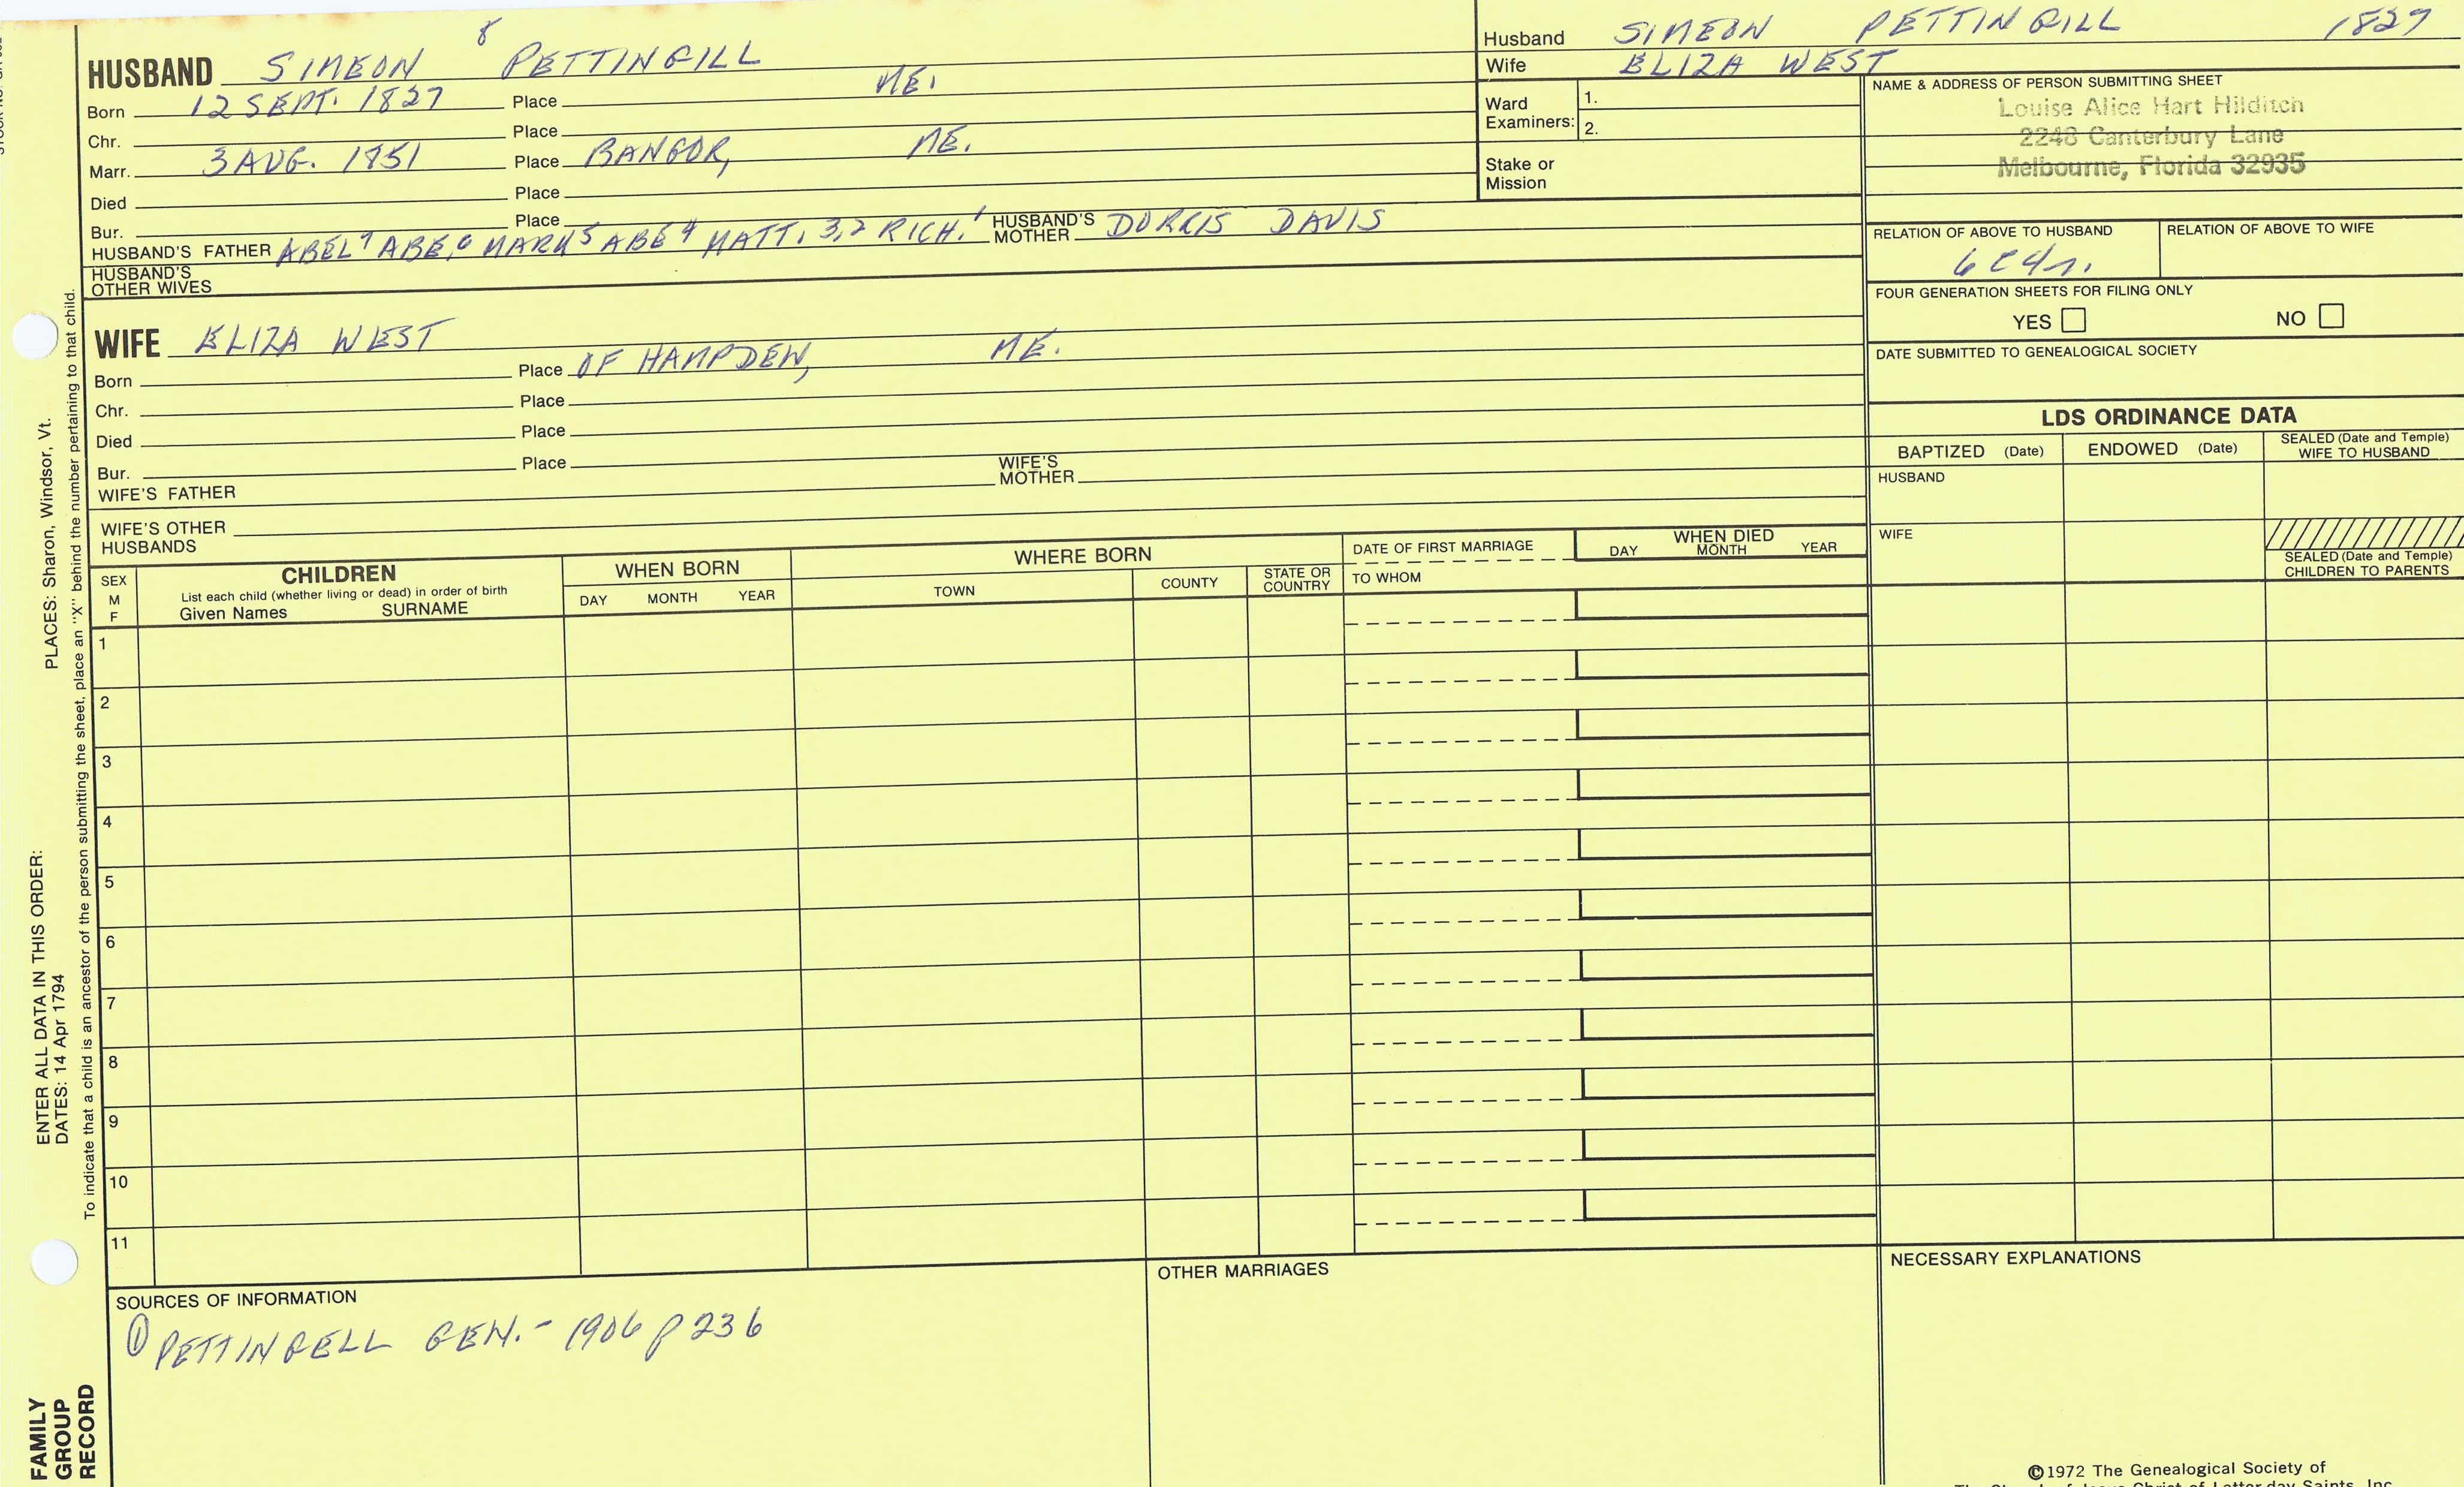 HUSBAND SIMEON 8 PETTINGILL
Born 12 SEPT. 1827 Place ME.
Chr. Place
Marr. 3 AUG. 1851 Place BANGOR, ME.
Died Place
Bur. Place
HUSBAND'S FATHER ABEL 7 ABE, 6 MARK 5 ABE 4 MATT. 3,2 RICH. 1 HUSBAND'S MOTHER DORRIS DAVIS
HUSBAND'S OTHER WIVES
WIFE ELIZA WEST
Born Place OF HAMPDEN, ME.
Chr. Place
Died Place
Bur. Place
WIFE'S FATHER WIFE'S MOTHER
WIFE'S OTHER HUSBANDS
Husband SIMEON PETTINGILL 1827
Wife ELIZA WEST
Ward Examiners: 1.
2.
Stake or Mission
NAME & ADDRESS OF PERSON SUBMITTING SHEET
Louise Alice Hart Hilditch
2248 Canterbury Lane
Melbourne, Florida 32935
RELATION OF ABOVE TO HUSBAND RELATION OF ABOVE TO WIFE
FOUR GENERATION SHEETS FOR FILING ONLY
YES NO
DATE SUBMITTED TO GENEALOGICAL SOCIETY
LDS ORDINANCE DATA
BAPTIZED (Date) ENDOWED (Date) SEALED (Date and Temple) WIFE TO HUSBAND
HUSBAND
WIFE
SEALED (Date and Temple) CHILDREN TO PARENTS
SEX M F
CHILDREN
List each child (whether living or dead) in order of birth
Given Names SURNAME
WHEN BORN
DAY MONTH YEAR
WHERE BORN
TOWN COUNTY STATE OR COUNTRY
DATE OF FIRST MARRIAGE
TO WHOM
WHEN DIED
DAY MONTH YEAR
1
2
3
4
5
6
7
8
9
10
11
SOURCES OF INFORMATION
① PETTINGELL GEN. - 1906 p 236
OTHER MARRIAGES
NECESSARY EXPLANATIONS
©1972 The Genealogical Society of
ENTER ALL DATA IN THIS ORDER:
DATES: 14 Apr 1794 PLACES: Sharon, Windsor, Vt.
To indicate that a child is an ancestor of the person submitting the sheet, place an "X" behind the number pertaining to that child.
FAMILY
GROUP
RECORD